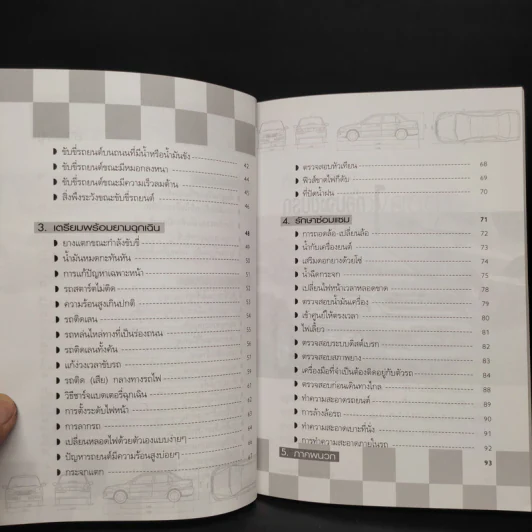 ขับขี่รถยนต์บนถนนที่มีน้ำหรือน้ำมันขัง 42
ขับขี่รถยนต์ขณะมีหมอกลงหนา 44
ขับขี่รถยนต์ขณะมีความเร็วลมต้าน 45
สิ่งพึงระวังขณะขับขี่รถยนต์ 46
3. เตรียมพร้อมยามฉุกเฉิน 48
ยางแตกขณะกำลังขับขี่
น้ำมันหมดกะทันหัน
การแก้ปัญหาเฉพาะหน้า
รถสตาร์ตไม่ติด
ความร้อนสูงเกินปกติ
รถติดเลน
รถหล่นไหล่ทางที่เป็นร่องถนน
รถติดเลนทั้งคัน
แก้ง่วงเวลาขับรถ
รถติด (เสีย) กลางทางรถไฟ
วิธีชาร์จแบตเตอรี่ฉุกเฉิน
การตั้งระดับไฟหน้า
การลากรถ
เปลี่ยนหลอดไฟด้วยตัวเองแบบง่ายๆ
ปัญหารถยนต์มีความร้อนสูงบ่อยๆ
กระจกแตก
ตรวจสอบหัวเทียน 68
ฟิวส์ขาดไฟก็ดับ 69
ที่ปัดน้ำฝน 70
4. รักษาซ่อมแซม 71
การถอดล้อ-เปลี่ยนล้อ 72
น้ำกับเครื่องยนต์ 73
เสริมดอกยางด้วยโซ่ 74
น้ำฉีดกระจก 75
เปลี่ยนไฟหน้าเวลาหลอดขาด 78
ตรวจสอบน้ำมันเครื่อง 79
เข้าศูนย์ให้ตรงเวลา 80
ไฟเลี้ยว 81
ตรวจสอบระบบดิสต์เบรก 82
ตรวจสอบสภาพยาง 83
เครื่องมือที่จำเป็นต้องติดอยู่กับตัวรถ 84
ตรวจสอบก่อนเดินทางไกล 88
ทำความสะอาดรถยนต์ 89
การล้างล้อรถ 90
ทำความสะอาดเบาะที่นั่ง 91
การทำความสะอาดภายในรถ 92
5. ภาคผนวก 93